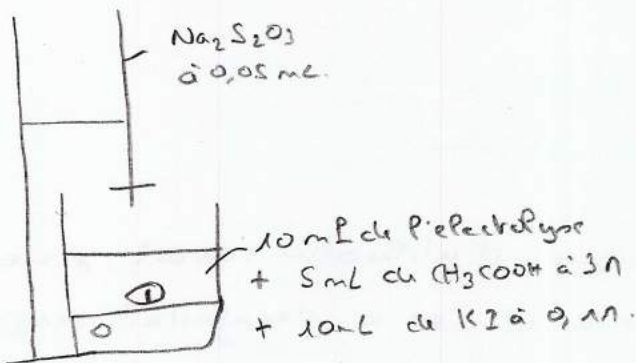 Na2S2O3
à 0,05 mL.
10 mL de l'électrolyse
+ 5 mL de CH3COOH à 3M
+ 10 mL de KI à 0,1M.